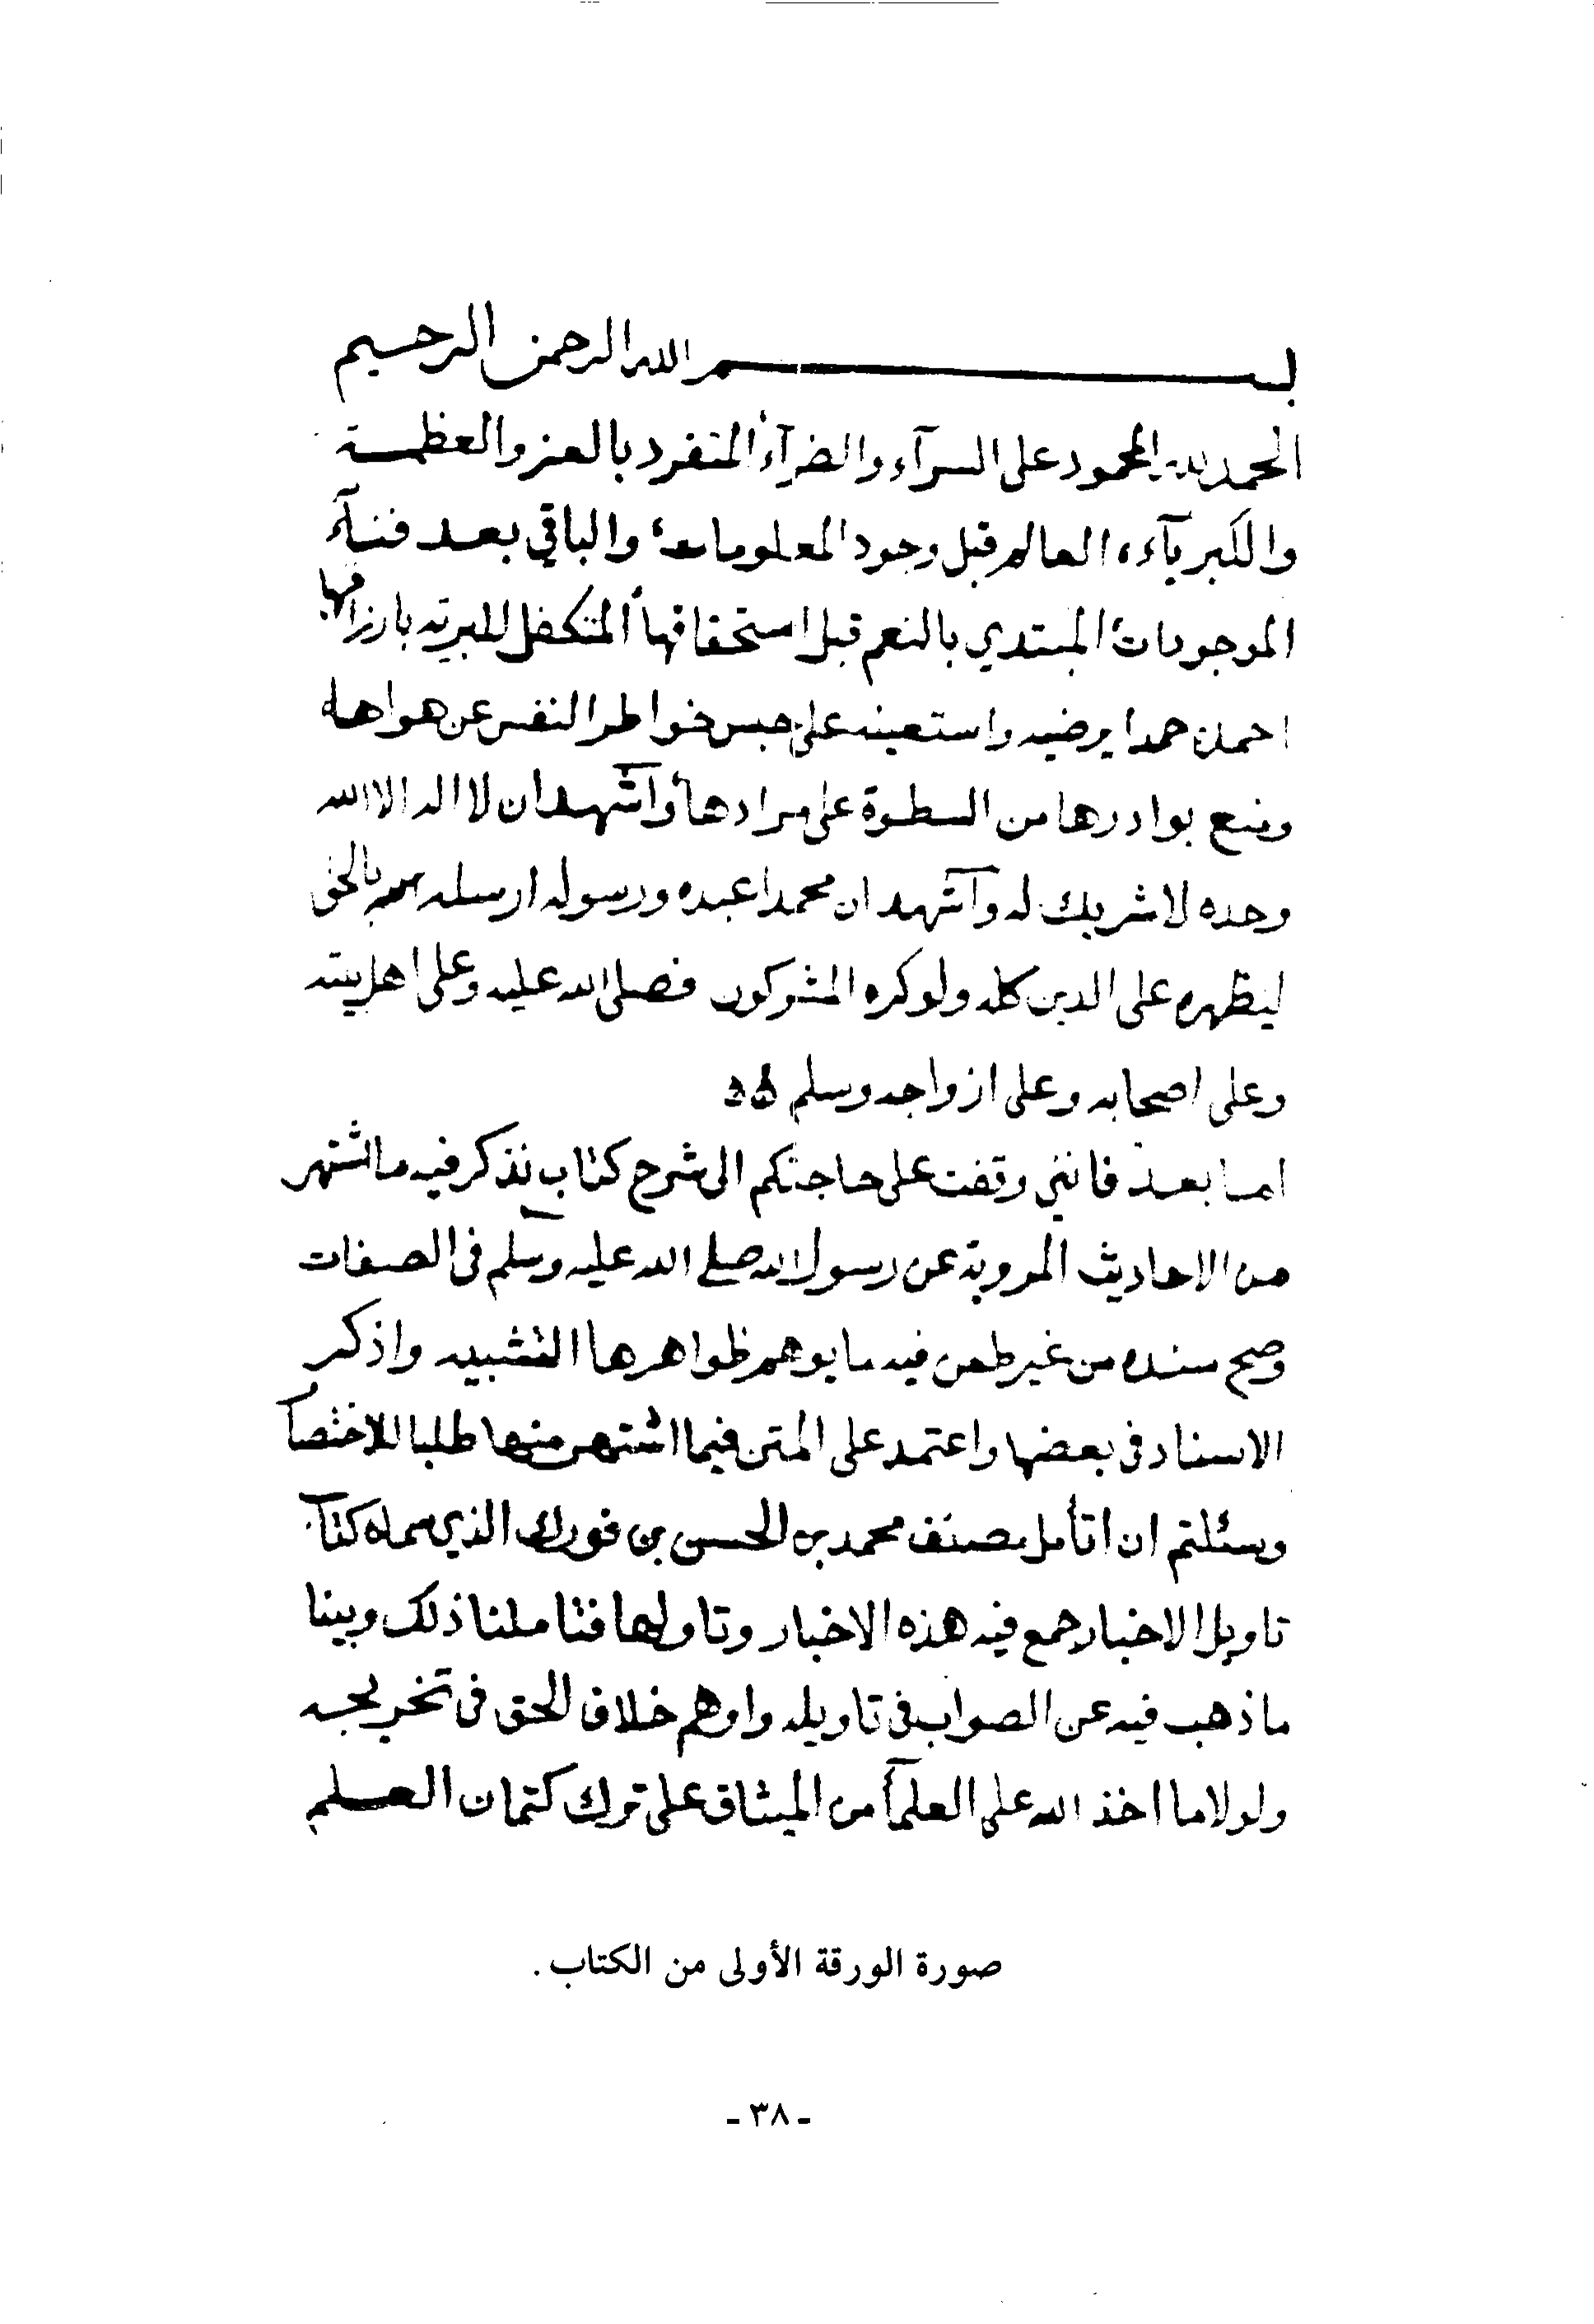 بسم الله الرحمن الرحيم
الحمد لله المحمود على السرآء والضرآء المتفرد بالعز والعظمة
والكبريآء، العالم قبل وجود المعلومات، والباقي بعد فنآء
الموجودات، المبتدي بالنعم قبل استحقاقها، المتكفل للبرية بارزاقها
احمده حمدا يرضيه واستعينه على حبس خواطر النفس عن هواها
ومنع بوادرها من السطوة على مرادها، واشهد ان لا اله الا الله
وحده لا شريك له واشهد ان محمدا عبده ورسوله ارسله بالحق
ليظهره على الدين كله ولو كره المشركون فصلى الله عليه وعلى اهل بيته
وعلى اصحابه وعلى ازواجه وسلم
اما بعد فانني وقفت على حاجتكم الى شرح كتاب نذكر فيه ما اشتهر
من الاحاديث المروية عن رسول الله صلى الله عليه وسلم في الصفات
وصح سنده من غير طعن فيه ما يوهم ظواهرها التشبيه واذكر
الاسناد في بعضها واعتمد على المتن فيما اشتهر منها طلبا للاختصا
وسئلتم ان اتأمل مصنف محمد بن الحسن بن فورك الذي سماه كتاب
تاويل الاخبار جمع فيه هذه الاخبار وتاولها فتاملنا ذلك وبينا
ما ذهب فيه عن الصواب في تاويله واوهم خلاف الحق في تخريجه
ولولا ما اخذ الله على العلمآ من الميثاق على ترك كتمان العلم
صورة الورقة الأولى من الكتاب.
- ٣٨ -